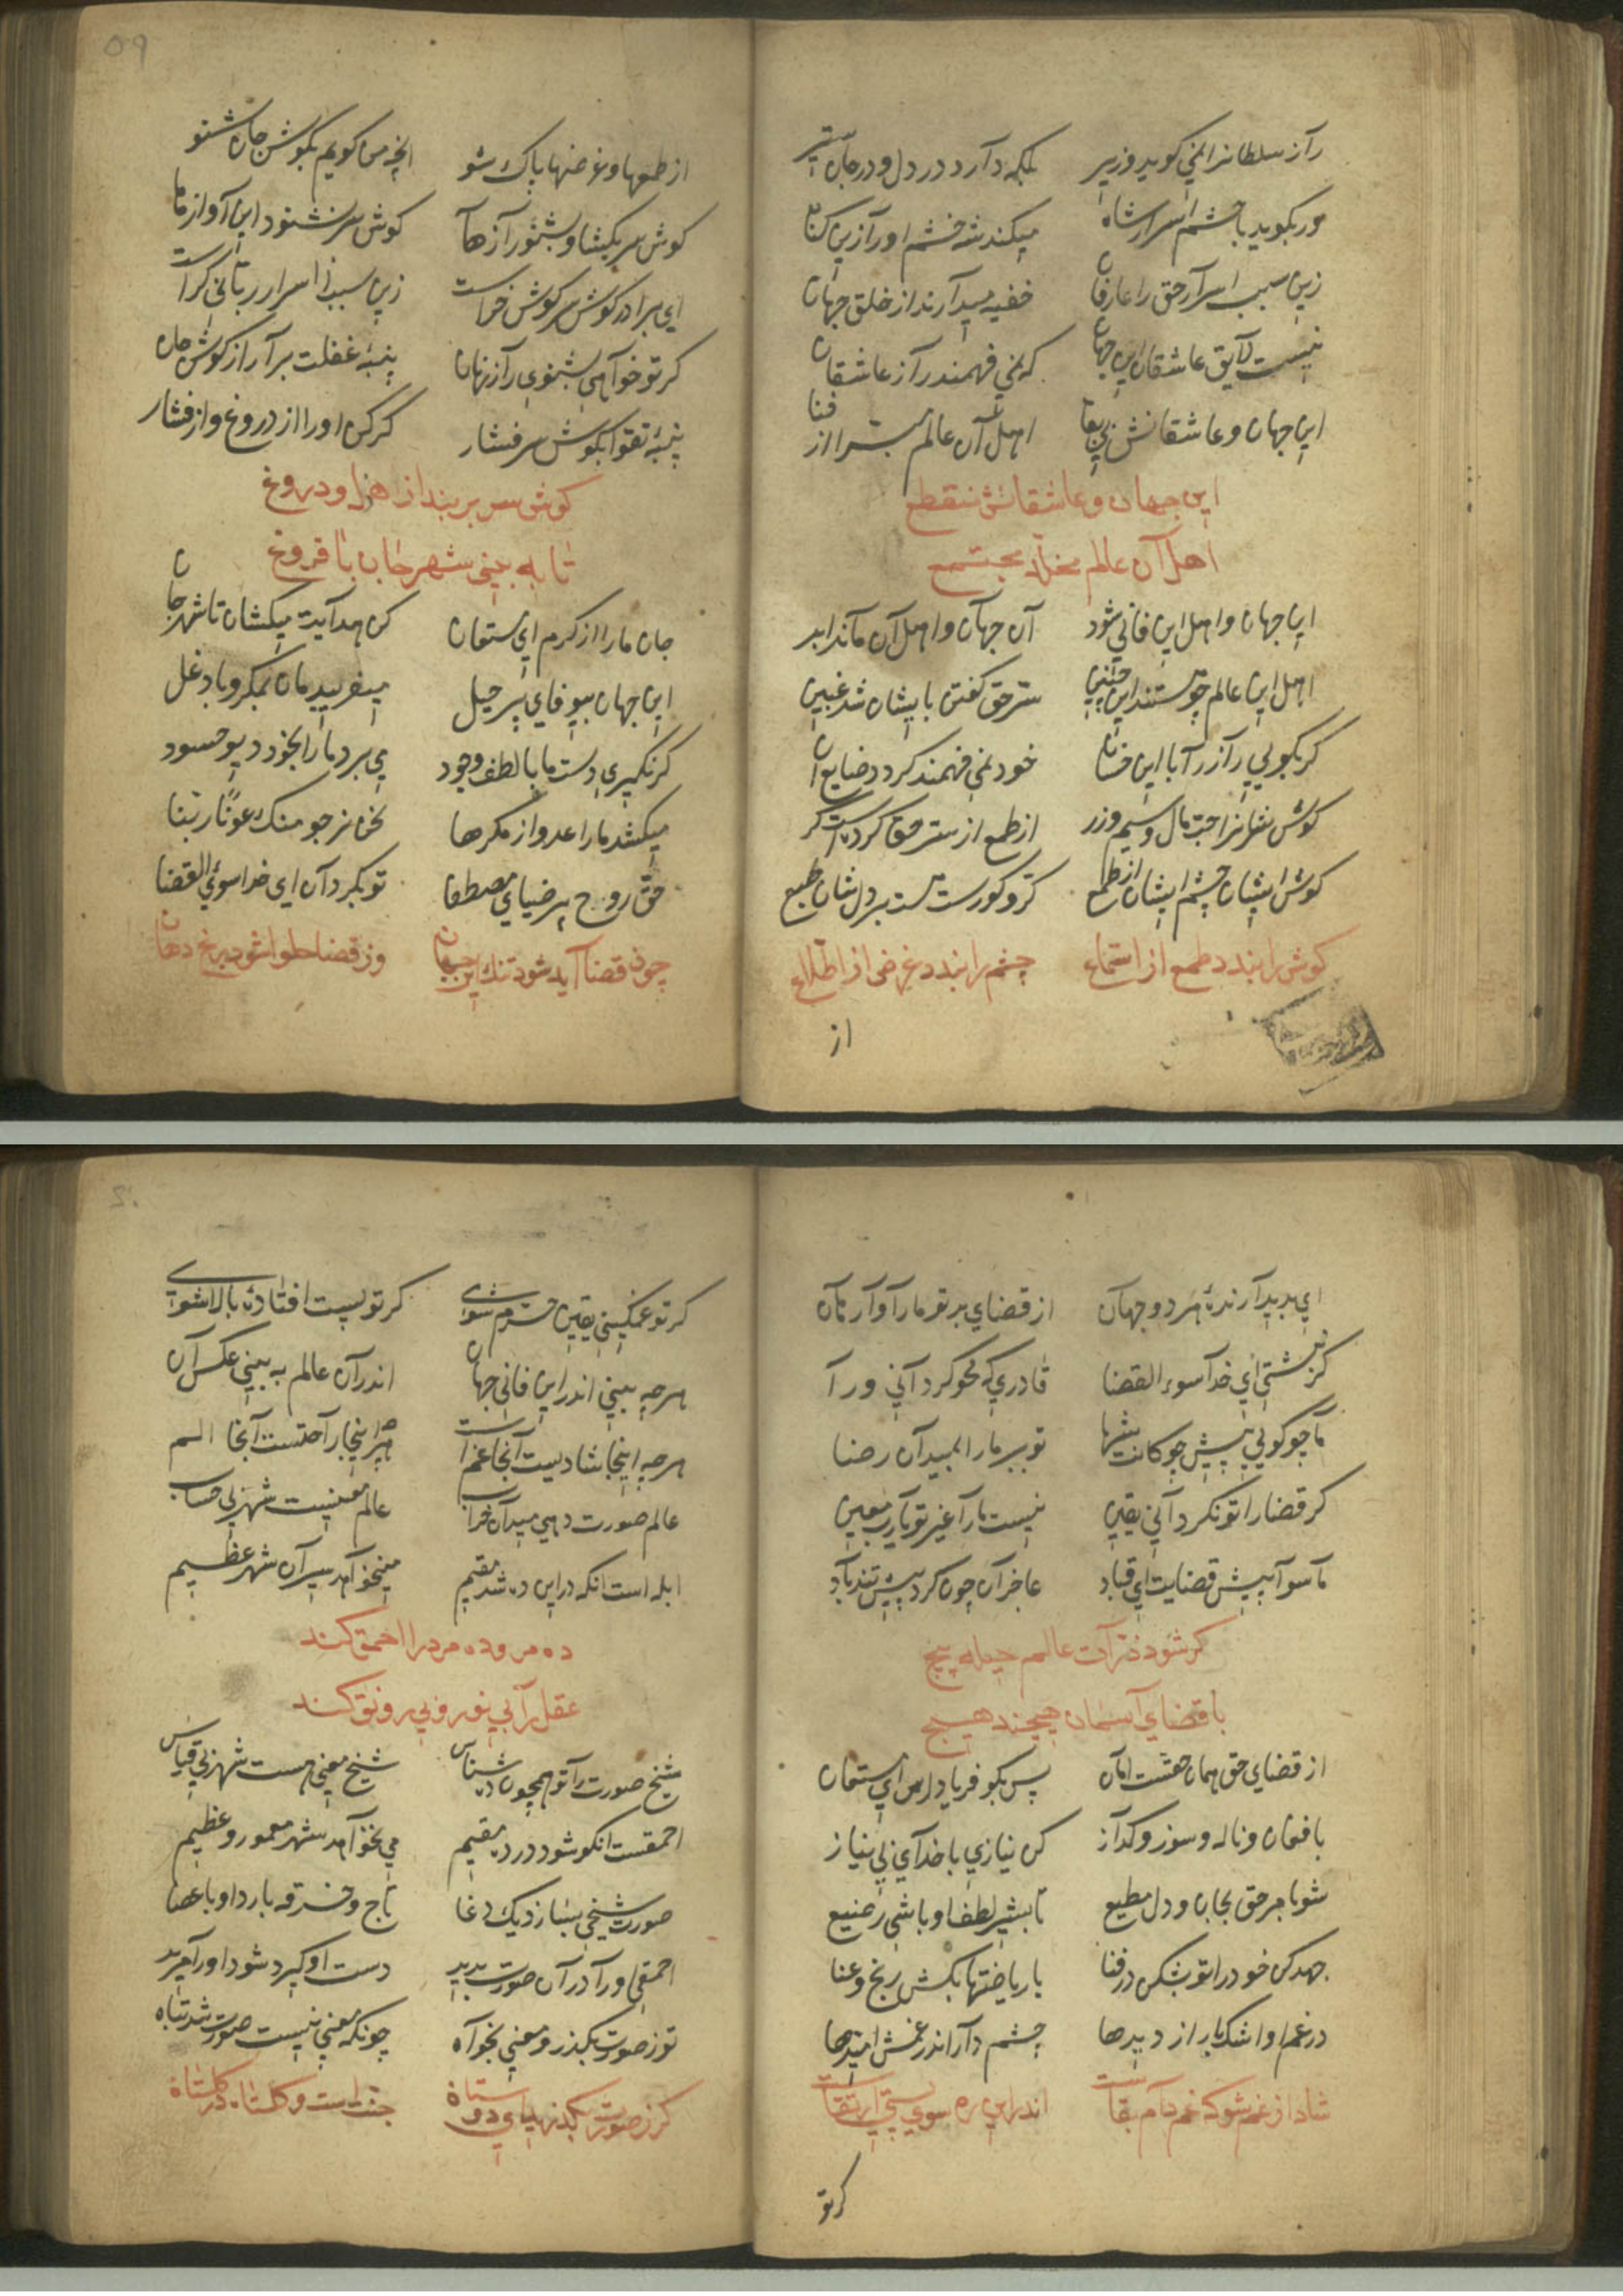 راز سلطانرا نمی کوید وزیر بلکه دارد در دل و در جان ستیر
ور بکوید با حشم اسرار شاه میکند شه خشم اورا زین کناه
زین سبب اسرار حق را عارفان خفیه میدارند از خلق جهان
نیست لایق عاشقان این جهان که نمی فهمند راز عاشقان
این جهان و عاشقانش بی بقا اهل آن عالم مبترا از فنا
این جهان و عاشقانش منقطع
اهل آن عالم مخلد مجتمع
این جهان و اهل این فانی شود آن جهان و اهل آن ماند ابد
اهل این عالم چو هستند این چنین سر حق کفتن بایشان شد غبین
کر بکویی راز را با این خسان خود نمی فهمند کردد ضایع آن
کوش شانرا حب مال و سیم و زر از طمع از سر حق کردست کر
کوش ایشان چشم ایشان از طمع کر و کورست هست بر دل شان طبع
کوش را بندد طمع از استماع چشم را بندد غرض از اطلاع
از
59
از طمعها و غرضها پاک شو انچه من کویم بکوش جان شنو
کوش سر بکشا و بشنو رازها کوش سر نشنود این آواز ما
ای برادر کوش سر کوش خراست زین سبب از اسرار ربانی کراست
کر تو خواهی بشنوی راز نهان پنبۀ غفلت برآر از کوش جان
پنبۀ تقوا بکوش سر فشار کر کن اورا از دروغ و از فشار
کوش سر بربند از هزل و دروغ
تا به بینی شهر جان با فروغ
جان مارا از کرم ای مستعان کن هدایت میکشان تا شهر جان
این جهان بیوفای پر حیل میفریبد مان بمکر و با دغل
کر نکیری دست ما با لطف و جود می برد مارا بخود دیو حسود
میکشد مارا عدو از مکرها نحن نرجو منک عونا ربنا
حق روح پر ضیای مصطفا تو بکردان ای خدا سوئ القضا
چون قضا آید شود تنک این جهان وز قضا حلوا شود رنج دهان
ای پدید آرندۀ هر دو جهان از قضای بد تو مارا وارهان
کر نبشتی ای خدا سوء القضا قادری که محو کردانی ورا
ما چو کویی پیش چوکانت شها تو ببر مارا بمیدان رضا
کر قضا را تو نکردانی یقین نیست مارا غیر تو یارب معین
ما سوا پیش قضایت ای قباد عاجزان چون کرد پیش تندباد
کر شود ذرات عالم حیله پیچ
با قضای آسمان هیچند هیچ
از قضای حق همان حقست امان پس بکو فریاد رس ای مستعان
با فغان و ناله و سوز و کداز کن نیازی با خدای بی نیاز
شو بامر حق بجان و دل مطیع تا بشیر لطف او باشی رضیع
جهد کن خود را تو بشکن در فنا با ریاضتها بکش رنج و عنا
در غم او اشک بار از دیدها چشم دار اندر غمش امیدها
شاد از غم شو که غم دام بقاست اندر این ره سوی پستی ارتقاست
کرتو
کر تو غمکینی یقین خرم شوی کر تو پست افتادۀ بالا شوی
هرچه بینی اندر این فانی جهان اندر آن عالم به بینی عکس آن
هرچه اینجا شادیست آنجا غم است هر اینجا راحتست آنجا الم
عالم صورت دهی میدان خراب عالم معنیست شهر بی حساب
ابله است انکه در این ده شد مقیم مینخواهد سیر آن شهر عظیم
ده مرو ده مرد را احمق کند
عقل را بی نور و بی رونق کند
شیخ صورت را تو همچون ده شناس شیخ معنی هست شهر بی قیاس
احمقست انکو شود در ده مقیم می نخواهد شهر معمور و عظیم
صورت شیخی بسازد یک دغا تاج و خرقه بارد او با عصا
احمقی اورا در آن صورت بدید دست او کیرد شود اورا مرید
تو ز صورت بکذر و معنی بخواه چونکه معنی نیست صورت شد تباه
کر ز صورت بکذرید ای دوستان جنت است و کلستان در کلستان